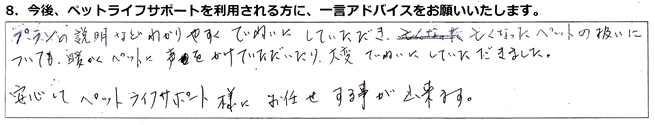 8. 今後、ペットライフサポートを利用される方に、一言アドバイスをお願いいたします。
プランの説明などわかりやすく ていねいに していただき、亡くなった ペットの扱いに
ついても、暖かく ペットに 声をかけていただいたり、大変 ていねいに していただきました。
安心して ペットライフサポート様に お任せ する事が出来ます。